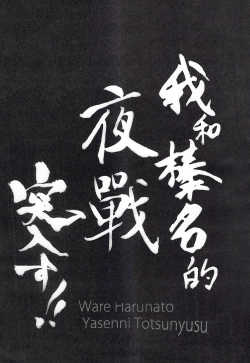 我和榛名的
夜戰
突入す!!
Ware Harunato
Yasenni Totsunyusu